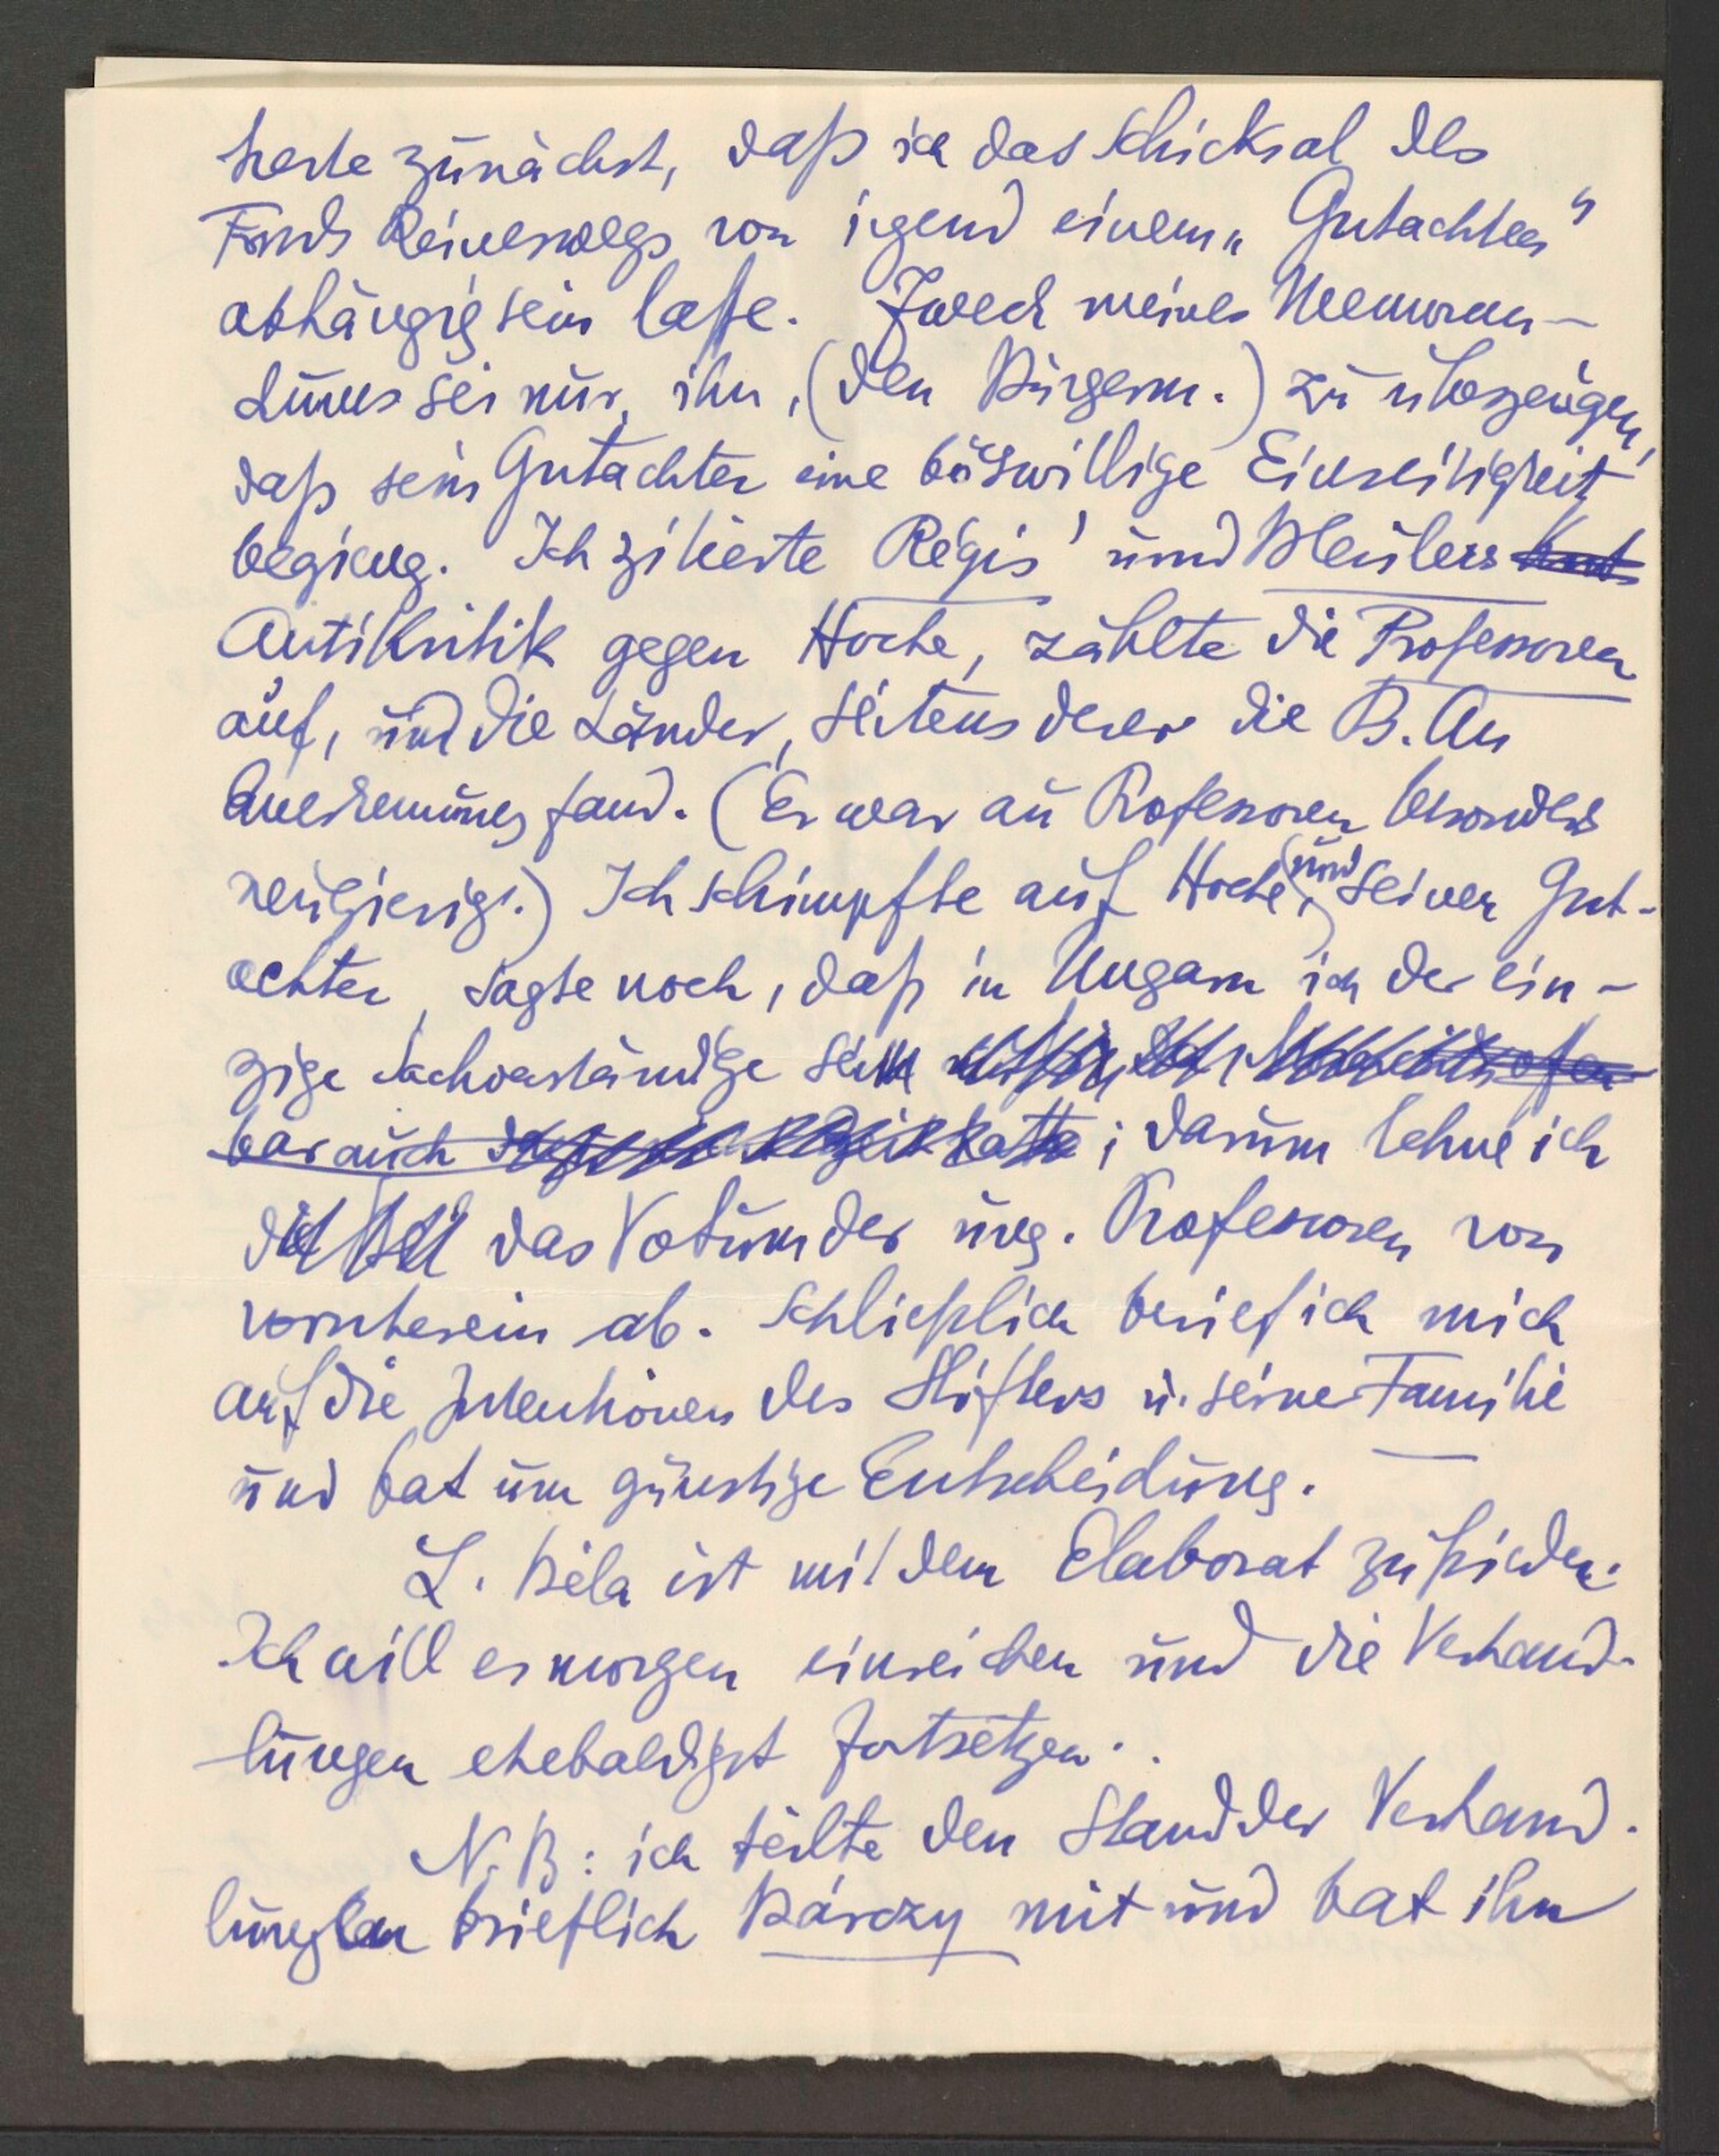 herte zunächst, daß ich das Schicksal des
Fonds keineswegs von irgend einem „Gutachten"
abhängig sein laße. Zweck meines Memoran-
dums sei nur, ihn, (den Bürgerm.) zu überzeugen,
daß sein Gutachter eine böswillige Einseitigkeit
beging. Ich zitierte Régis' und Bleulers
Antikritik gegen Hoche, zählte die Professoren
auf, und die Länder, seitens derer die B. An
Anerkennung fand. (Er war auf Professoren besonders
neugierig.) Ich schimpfte auf Hoche, und seinen Gut-
achter, sagte noch, daß in Ungarn ich der ein-
zige Sachverständige sei
bar auch hatte; darum lehne ich
das Votum der ung. Professoren von
vornherein ab. Schließlich berief ich mich
auf die Intentionen des Stifters u. seiner Familie
und bat um günstige Entscheidung.
L. Béla ist mit dem Elaborat zufrieden.
Ich will es morgen einreichen und die Verhand-
lungen ehebaldigst fortsetzen.
N.B: ich teilte den Stand der Verhand-
lungen brieflich Bárczy mit und bat ihn